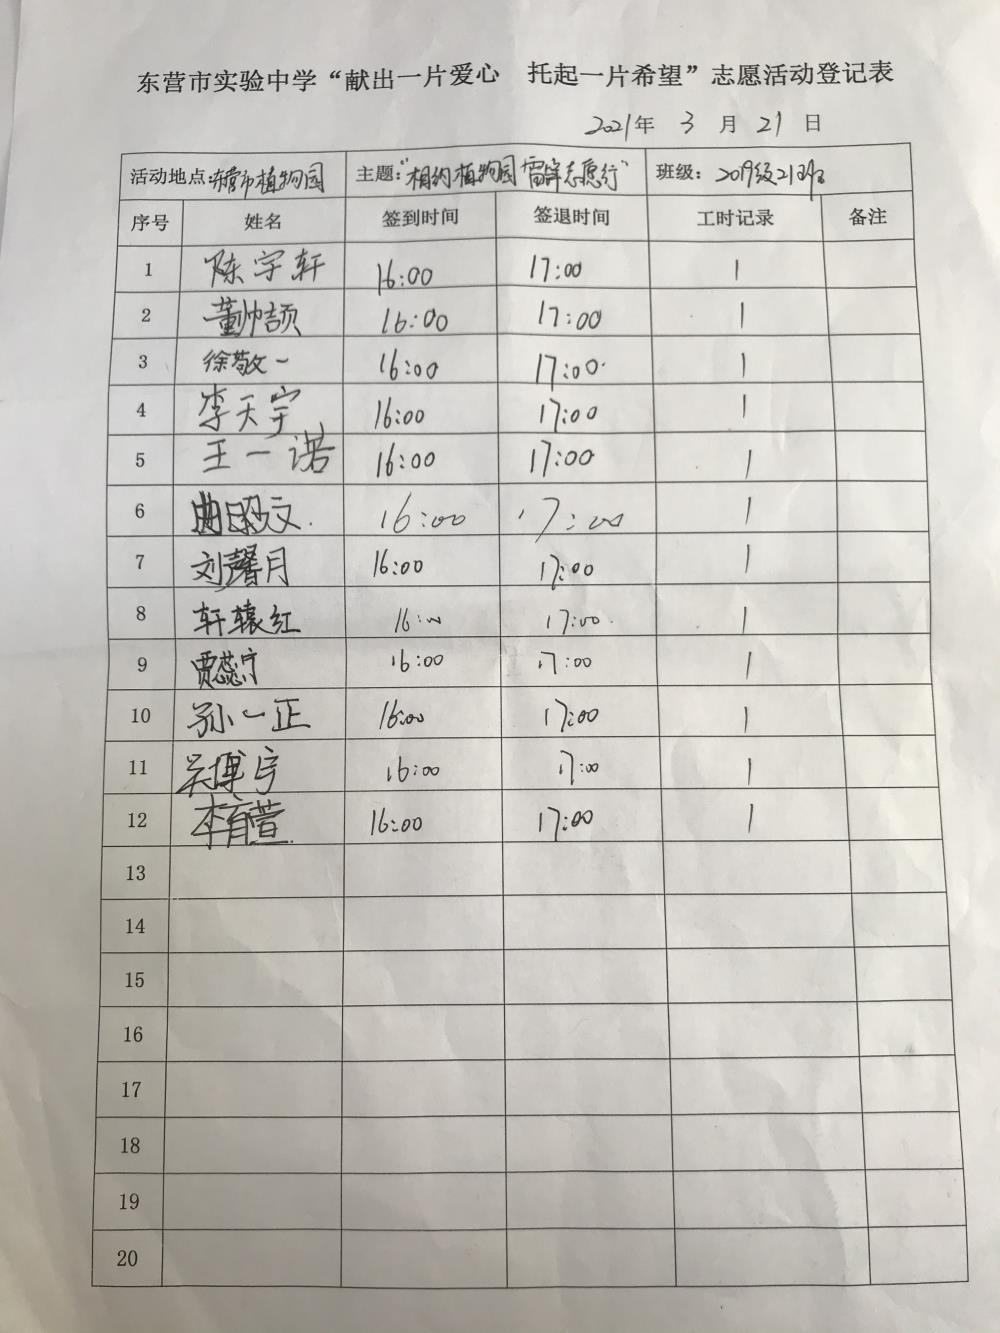 东营市实验中学“献出一片爱心 托起一片希望”志愿活动登记表
2021年 3 月 21 日
活动地点:东营市植物园 主题:“相约植物园 雷锋志愿行” 班级: 2019级21班
序号 姓名 签到时间 签退时间 工时记录 备注
1 陈宇轩 16:00 17:00 1
2 董帅颉 16:00 17:00 1
3 徐敬一 16:00 17:00 1
4 李天宇 16:00 17:00 1
5 王一诺 16:00 17:00 1
6 曲文 16:00 17:00 1
7 刘馨月 16:00 17:00 1
8 轩辕红 16:00 17:00 1
9 贾蕊宁 16:00 17:00 1
10 孙一正 16:00 17:00 1
11 吴博宇 16:00 17:00 1
12 李育萱 16:00 17:00 1
13
14
15
16
17
18
19
20